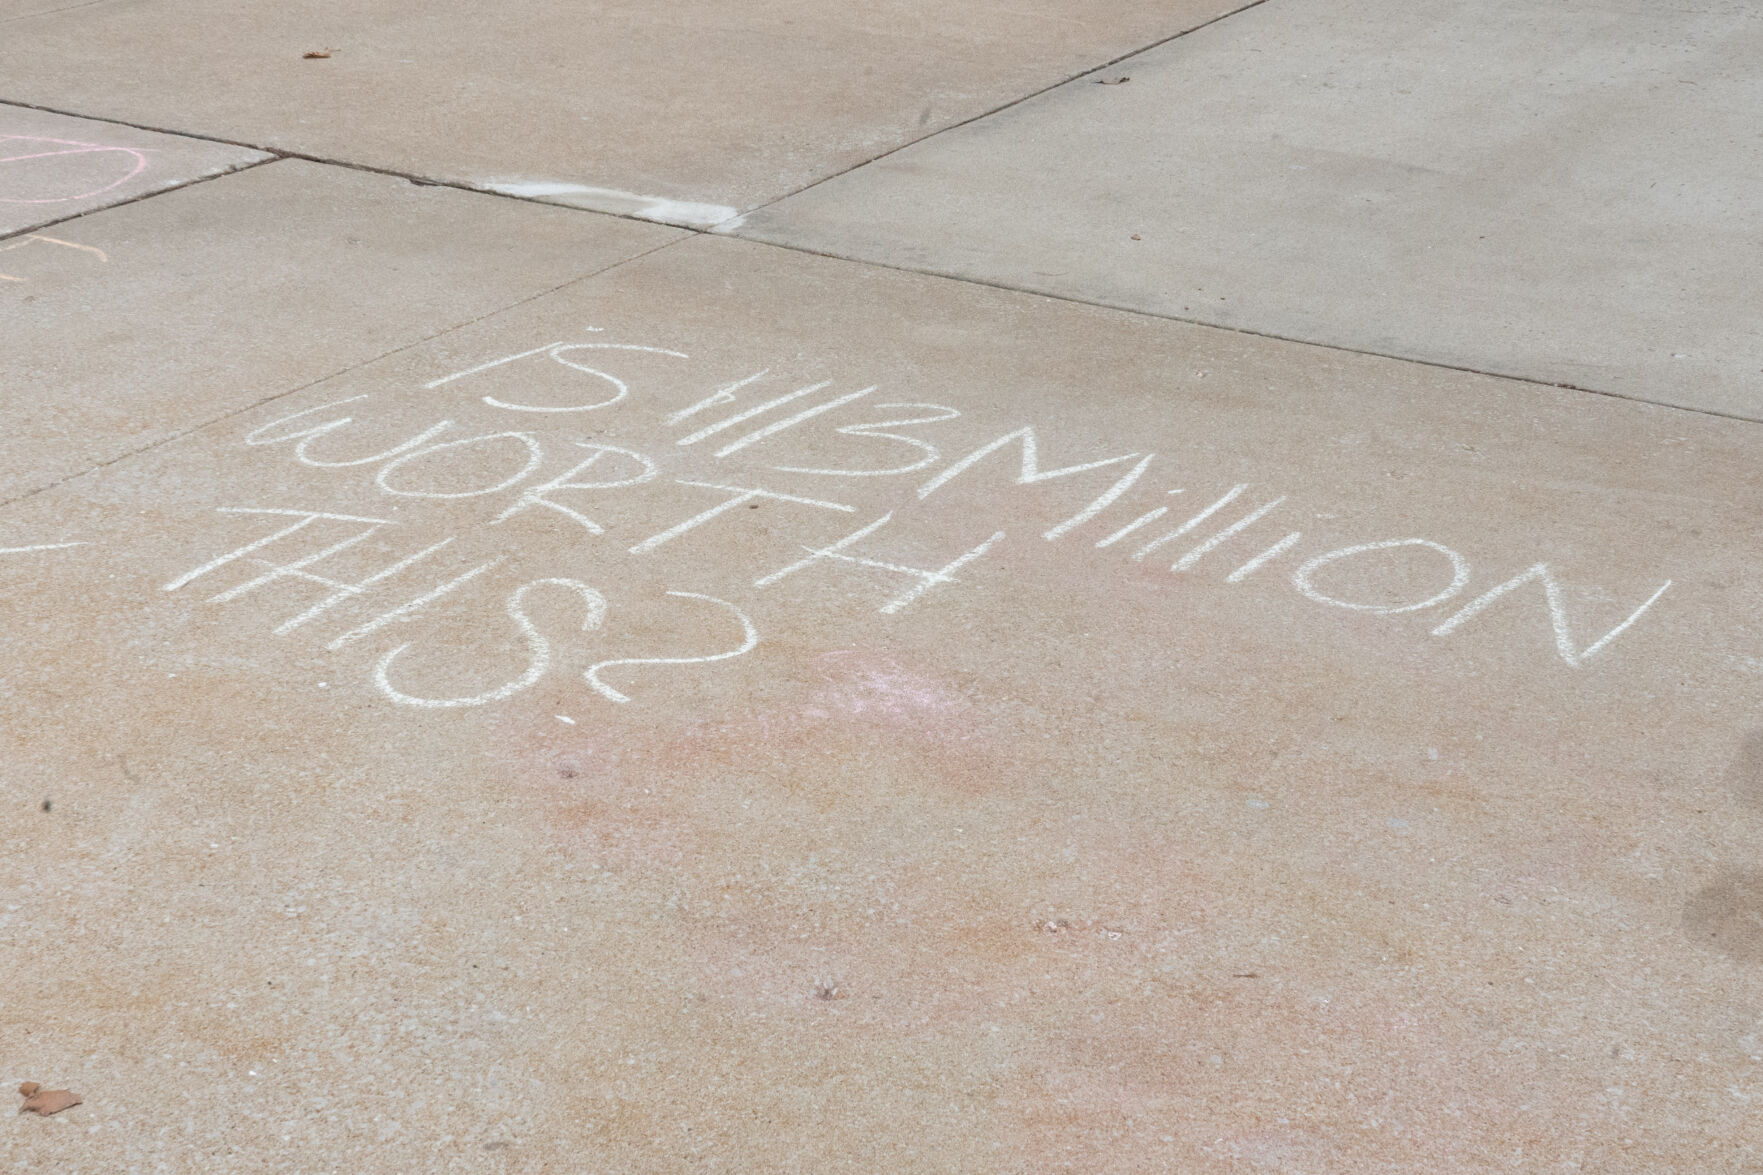 iS 113 MilliON
WORTH
THIS?